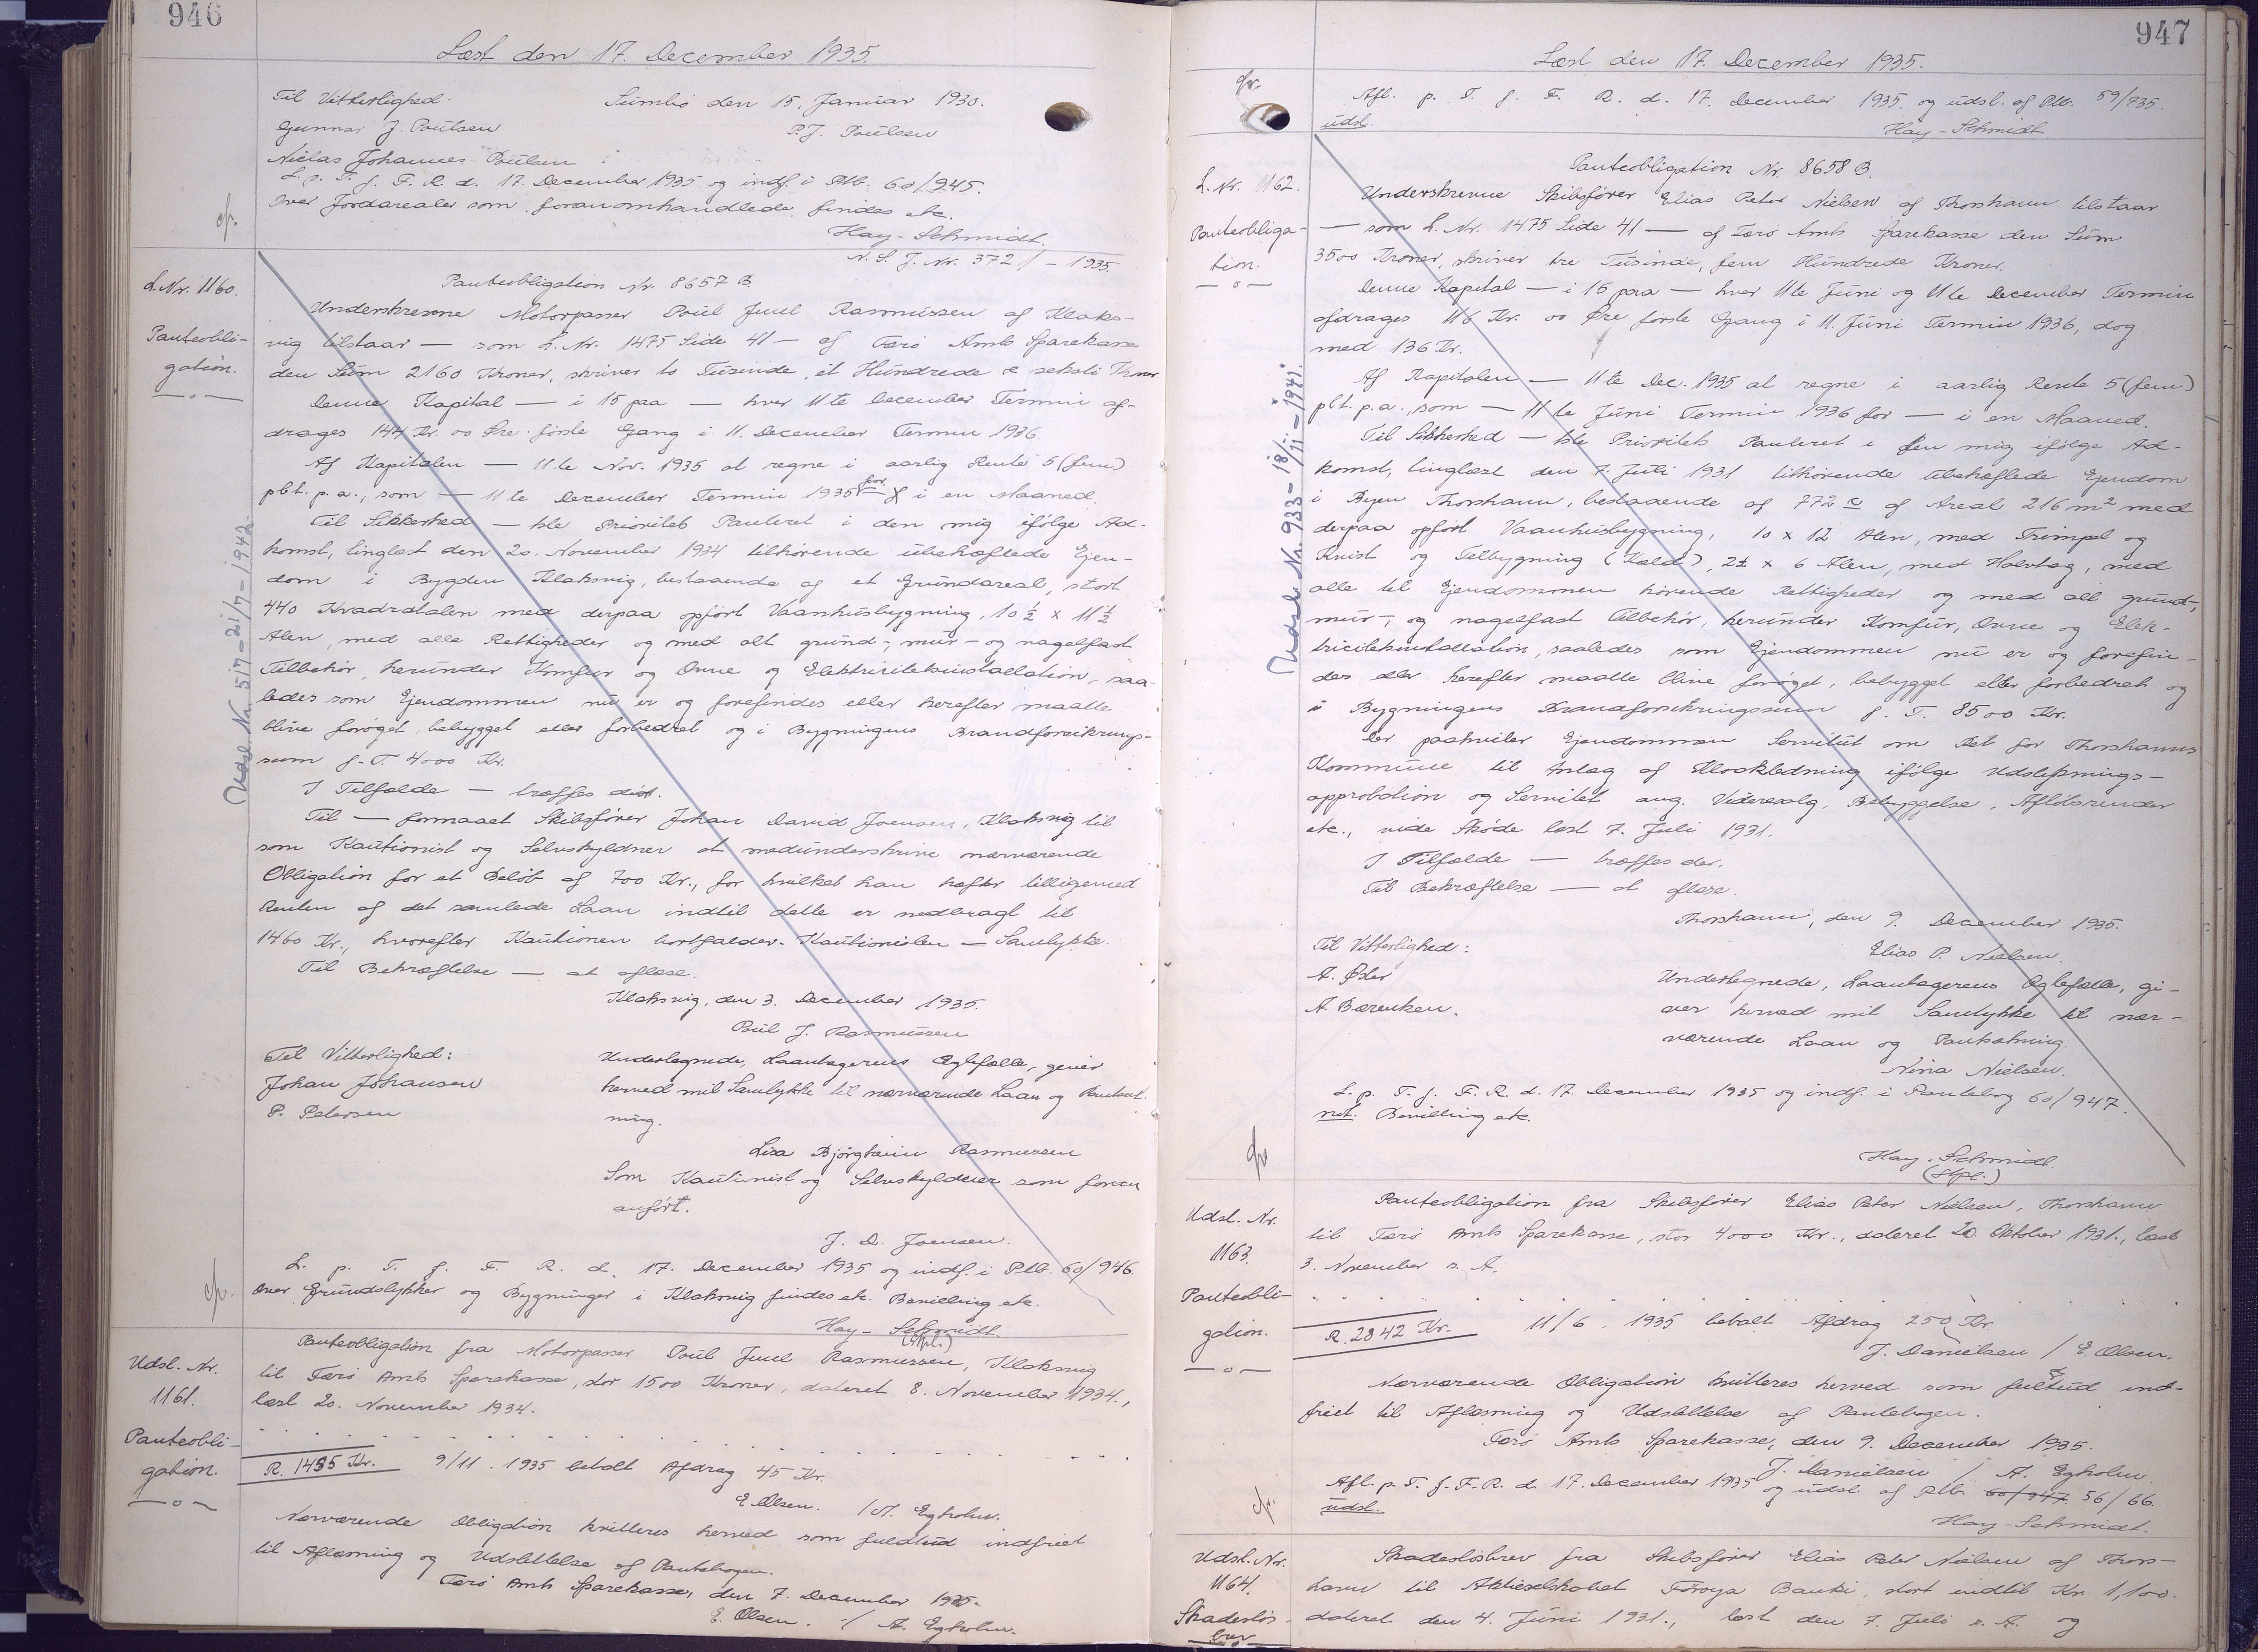 946
Læst den 17. December 1935.
Til Vitterlighed: Sumbø den 15. Januar 1930.
Gunnar J. Poulsen P.J. Poulsen
Niclas Johannes Poulsen
L. p. T. f. F. R. d. 17. December 1935 og indf. i Ptb. 60/945.
Over Jordarealer som foranomhandlede findes etc.
Hay-Schmidt.
N. S. J. Nr. 372/ - 1935.
L. Nr. 1160.
Panteobli-
gation.
Udsl. Nr. 517 - 21/7 - 1942
Panteobligation Nr. 8657 B.
Underskrevne Motorpasser Poul Juul Rasmussen af Klaks-
vig tilstaar — som L. Nr. 1475 Side 41 — af Færø Amts Sparekasse
den Sum 2160 Kroner, skriver to Tusinde, et Hundrede & seksti Kroner
Denne Kapital — i 15 paa — hver 11te December Termin af-
drages 144 Kr. 00 Øre første Gang i 11. December Termin 1936.
Af Kapitalen — 11te Nov. 1935 at regne i aarlig Rente 5 (fem)
pct. p.a., som — 11te December Termin 1935 for — i en Maaned.
Til Sikkerhed — 1ste Prioritets Panteret i den mig ifølge Ad-
komst, tinglæst den 20. November 1934 tilhørende ubehæftede Ejen-
dom i Bygden Klaksvig, bestaaende af et Grundareal, stort
440 Kvadratalen med derpaa opført Vaanhusbygning, 10 ½ x 11 ½
Alen, med alle Rettigheder og med alt grund-, mur- og nagelfast
Tilbehør, herunder Komfur og Ovne og Elektricitetsinstallation, saa-
ledes som Ejendommen nu er og forefindes eller herefter maatte
blive forøget, bebygget eller forbedret og i Bygningens Brandforsikrings-
sum f. T. 4000 Kr.
I Tilfælde — træffes der.
Til — formaaet Skibsfører Johan David Joensen, Klaksvig til
som Kautionist og Selvskyldner at medunderskrive nærværende
Obligation for et Beløb af 700 Kr., for hvilket han hæfter tilligemed
Renten af det samlede Laan indtil dette er nedbragt til
1460 Kr., hvorefter Kautionen bortfalder. Kautionisten — Samtykke.
Til Bekræftelse — at aflæse.
Klaksvig, den 3. December 1935.
Poul J. Rasmussen
Til Vitterlighed: Undertegnede, Laantagerens Ægtefælle, giver
Johan Johansen herved mit Samtykke til nærværende Laan og Pantsæt-
P. Petersen ning.
Lisa Bjørgheim Rasmussen
Som Kautionist og Selvskyldner som foran
anført.
J. D. Joensen.
L. p. T. f. F. R. d. 17. December 1935 og indf. i Ptb. 60/946.
Over Grundstykker og Bygninger i Klaksvig findes etc. Bevilling etc.
Hay-Schmidt.
Udsl. Nr.
1161.
Panteobli-
gation.
Panteobligation fra Motorpasser Poul Juul Rasmussen, Klaksvig
til Færø Amts Sparekasse, stor 1500 Kroner, dateret 8. November 1934.,
læst 20. November 1934.
R. 1455 Kr. 9/11. 1935 betalt Afdrag 45 Kr.
E Olsen. / A. Egholm.
Nærværende Obligation kvitteres herved som fuldtud indfriet
til Aflæsning og Udslettelse af Pantebogen.
Færø Amts Sparekasse, den 7. December 1935.
E. Olsen. / A. Egholm.
947
Læst den 17. December 1935.
Afl. p. T. f. F. R. d. 17. December 1935 og udsl. af Ptb. 59/735.
udsl.
Hay-Schmidt
L. Nr. 1162.
Panteobliga-
tion.
Udsl. Nr. 933 - 18/11 - 1941.
Panteobligation Nr. 8658 B.
Underskrevne Skibsfører Elias Peter Nielsen af Thorshavn tilstaar
— som L. Nr. 1475 Side 41 — af Færø Amts Sparekasse den Sum
3500 Kroner, skriver tre Tusinde, fem Hundrede Kroner.
Denne Kapital — i 15 paa — hver 11te Juni og 11te December Termin
afdrages 116 Kr. 00 Øre første Gang i 11. Juni Termin 1936, dog
med 136 Kr.
Af Kapitalen — 11te Dec. 1935 at regne i aarlig Rente 5 (fem)
pct. p.a., som — 11te Juni Termin 1936 for — i en Maaned.
Til Sikkerhed — 1ste Prioritets Panteret i den mig ifølge Ad-
komst, tinglæst den 7. Juli 1931 tilhørende ubehæftede Ejendom
i Byen Thorshavn, bestaaende af 772 c af Areal 216 m² med
derpaa opført Vaanhusbygning, 10 x 12 Alen, med Trempel og
Kvist og Tilbygning (Kold), 2½ x 6 Alen, med Halvtag, med
alle til Ejendommen hørende Rettigheder og med alt grund-,
mur-, og nagelfast Tilbehør, herunder Komfur, Ovne og Elek-
tricitetsinstallation, saaledes som Ejendommen nu er og forefin-
des eller herefter maatte blive forøget, bebygget eller forbedret og
i Bygningens Brandforsikringssum f. T. 8500 Kr.
Der paahviler Ejendommen Servitut om Ret for Thorshavns
Kommune til Anlæg af Kloakledning ifølge Udstyknings-
approbation og Servitut ang. Videresalg, Bebyggelse, Afløbsrender
etc., vide Skøde læst 7. Juli 1931.
I Tilfælde — træffes der.
Til Bekræftelse — at aflæse.
Thorshavn, den 9. December 1935.
Til Vitterlighed: Elias P. Nielsen.
A. Øster Undertegnede, Laantagerens Ægtefælle, gi-
A. Bærentsen. ver herved mit Samtykke til nær-
værende Laan og Pantsætning.
Nina Nielsen.
L. p. T. f. F. R. d. 17. December 1935 og indf. i Pantebog 60/947.
not. Bevilling etc.
Hay-Schmidt.
Udsl. Nr.
1163.
Panteobli-
gation.
Panteobligation fra Skibsfører Elias Peter Nielsen, Thorshavn
til Færø Amts Sparekasse, stor 4000 Kr., dateret 20. Oktober 1931., læst
3. November s. A.
R. 2842 Kr. 11/6. 1935 betalt Afdrag 250 Kr
J. Danielsen / E. Olsen.
Nærværende Obligation kvitteres herved som fuldtud ind-
friet til Aflæsning og Udslettelse af Pantebogen.
Færø Amts Sparekasse, den 9. December 1935.
J. Danielsen / A. Egholm
Afl. p. T. f. F. R. d. 17. December 1935 og udsl. af Ptb. 60/947 56/66.
udsl.
Hay-Schmidt.
Udsl. Nr.
1164.
Skadesløs-
brev
Skadesløsbrev fra Skibsfører Elias Peter Nielsen af Thors-
havn til Aktieselskabet Føroya Banki, stort indtil Kr. 1,100.
dateret den 4. Juni 1931., læst den 7. Juli s. A. og